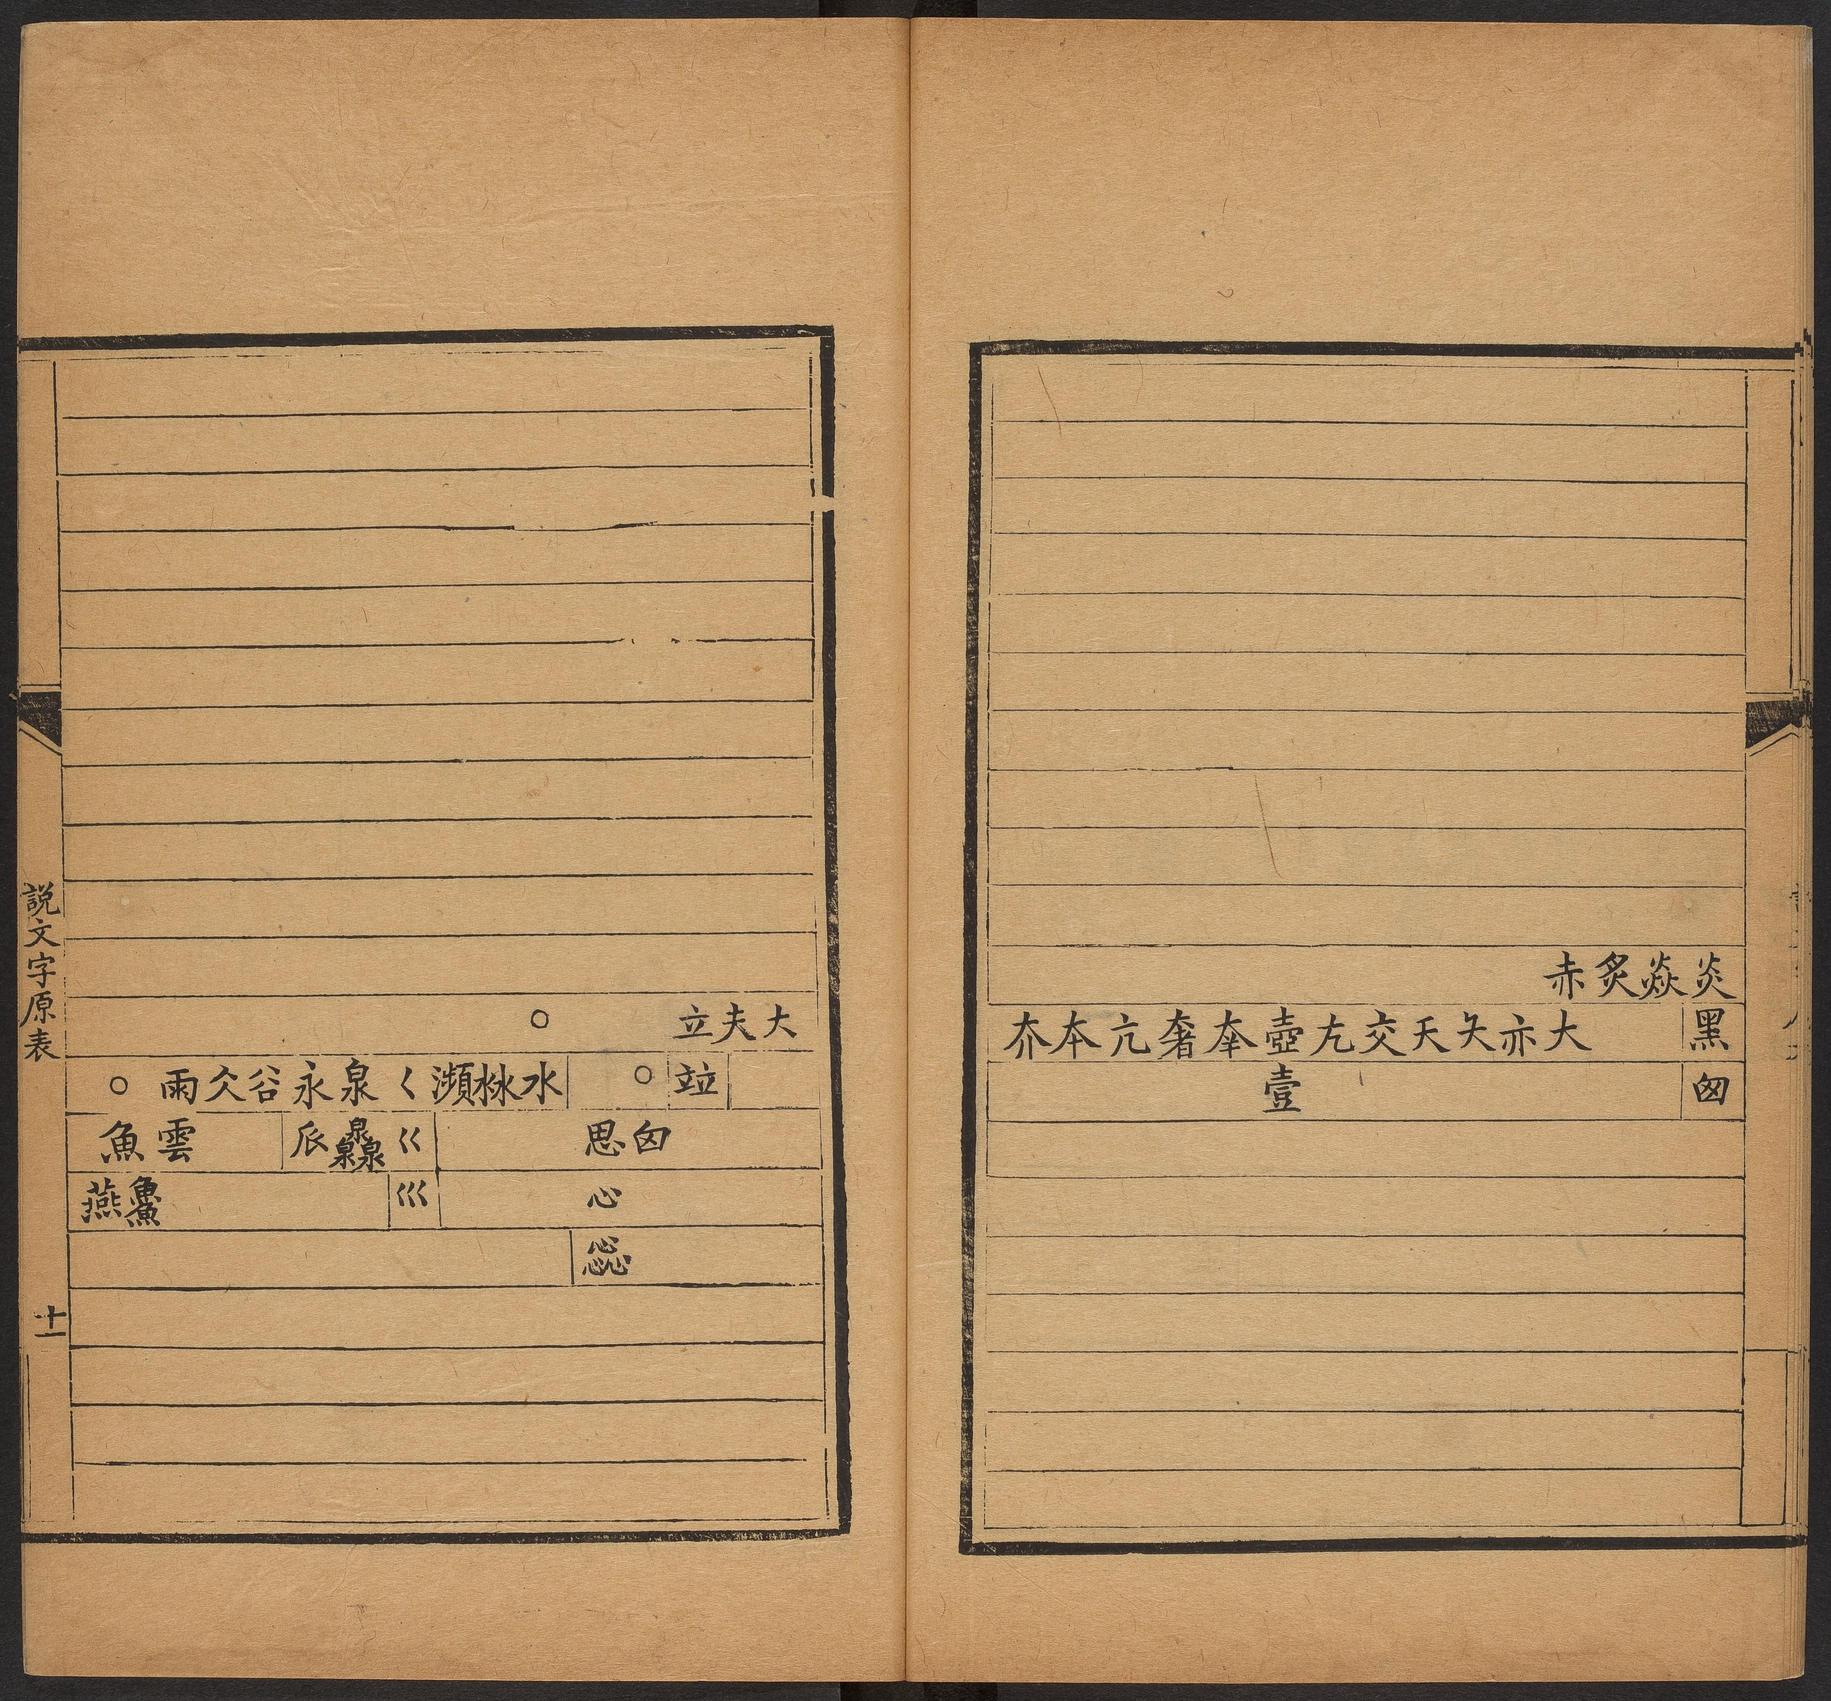 炎焱炙赤
黑 大亦夨夭交尢壺㚔奢亢夲夰
囪 壹
大夫立 ○
竝 ○ 水沝瀕く泉永谷仌雨 ○
囟思 巜灥𠂢 雲魚
心 巛 𩺰燕
惢
說文字原表
十一